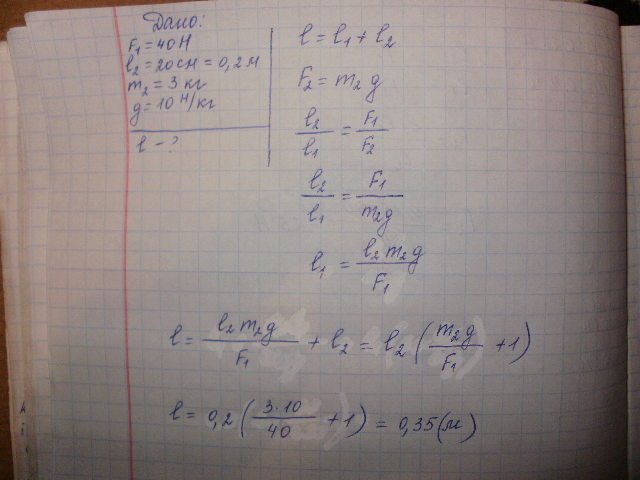 Дано:
F₁ = 40 Н
l₂ = 20 см = 0,2 м
m₂ = 3 кг
g = 10 Н/кг
l - ?
l = l₁ + l₂
F₂ = m₂ g
l₂/l₁ = F₁/F₂
l₂/l₁ = F₁/m₂g
l₁ = l₂ m₂ g/F₁
l = l₂ m₂ g/F₁ + l₂ = l₂ (m₂g/F₁ + 1)
l = 0,2 (3·10/40 + 1) = 0,35 (м)